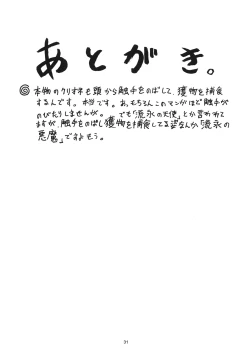 あとがき。
本物のクリオネも頭から触手をのばして、獲物を捕食
するんです。本当です。あ、もちろんこのマンガほど触手が
のびたりしませんが。でも「流氷の天使」とか言われて
ますが、触手をのばし獲物を捕食してる姿なんか「流氷の
悪魔」ですよもう。
31